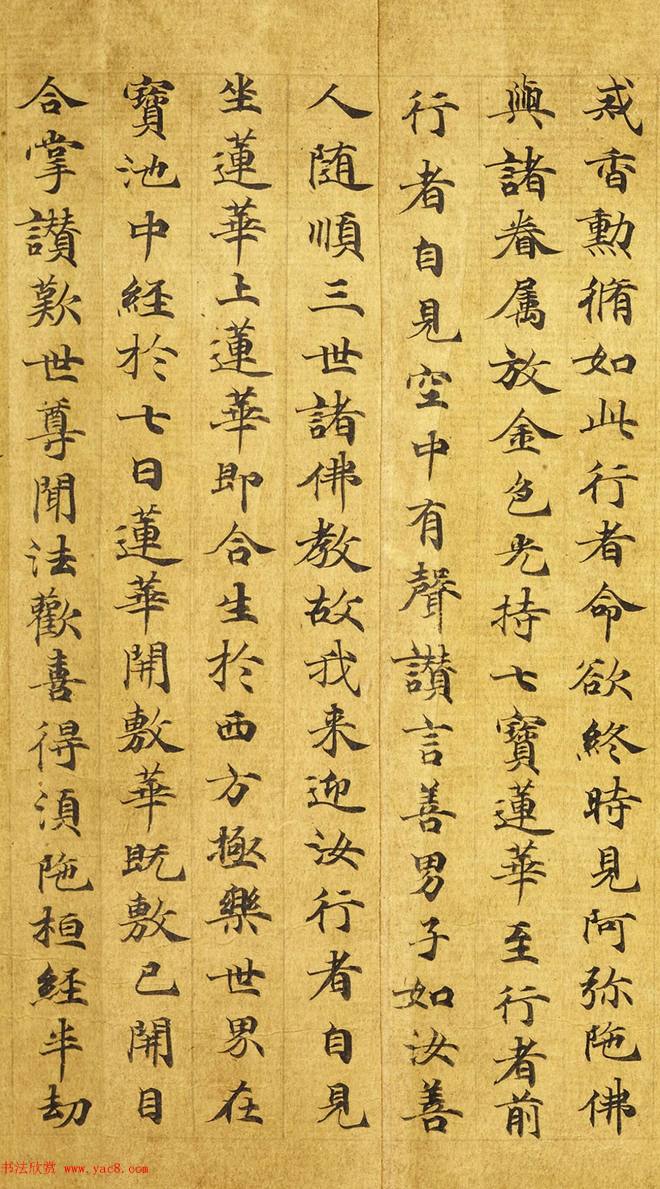 戒香勳脩如此行者命欲終時見阿弥陁佛
與諸眷属放金色光持七寶蓮華至行者前
行者自見空中有聲讃言善男子如汝善
人随順三世諸佛教故我来迎汝行者自見
坐蓮華上蓮華即合生於西方極樂世界在
寶池中経於七日蓮華開敷華既敷已開目
合掌讃歎世尊聞法歡喜得湏陁桓経半劫
书法欣赏 www.yac8.com